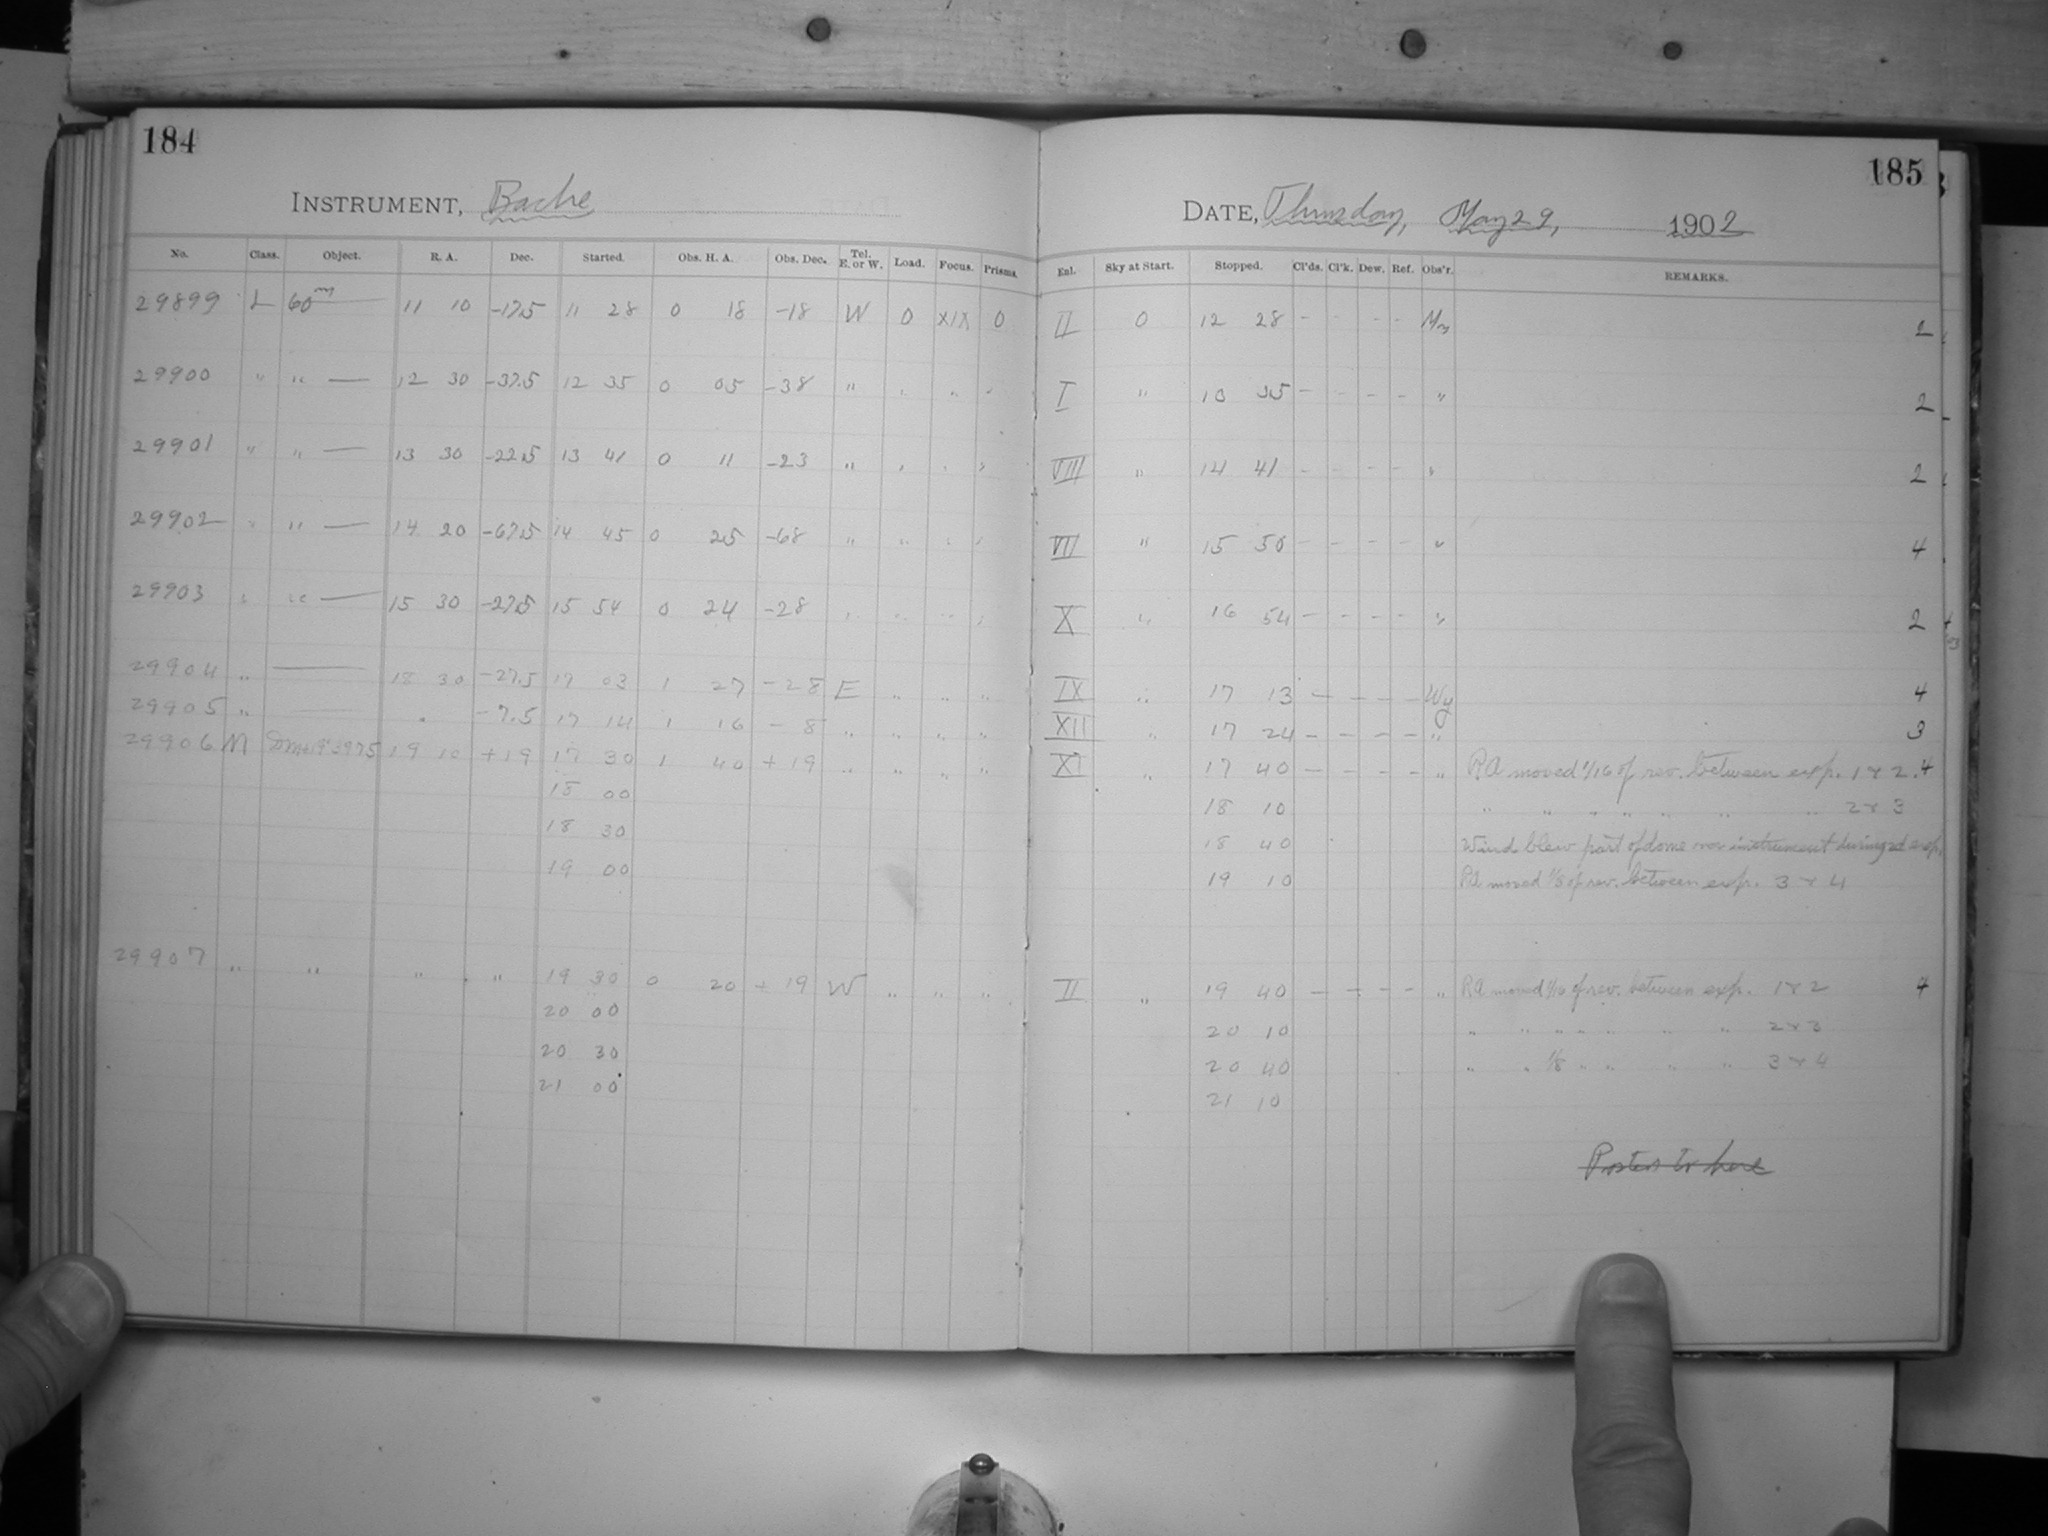 184
INSTRUMENT, Bache
No. Class. Object. R. A. Dec. Started. Obs. H. A. Obs. Dec. Tel. E. or W. Load. Focus. Prisms.
29899 L 60m — 11 10 -17.5 11 28 0 18 -18 W 0 XIX 0
29900 " " — 12 30 -37.5 12 35 0 05 -38 " " " "
29901 " " — 13 30 -22.5 13 41 0 11 -23 " " " "
29902 " " — 14 20 -67.5 14 45 0 25 -68 " " " "
29903 " " — 15 30 -27.5 15 54 0 24 -28 " " " "
29904 " — 18 30 -27.5 17 03 1 27 -28 E " " "
29905 " — " -7.5 17 14 1 16 -8 " " " "
29906 M 3975 19 10 +19 17 30 1 40 +19 " " " "
18 00
18 30
19 00
29907 " " " " 19 30 0 20 +19 W " " "
20 00
20 30
21 00
185
DATE, Thursday, May 29, 1902
Enl. Sky at Start. Stopped. Cl'ds. Cl'k. Dew. Ref. Obs'r. REMARKS.
II 0 12 28 - - - - 2
I " 35 - - - - " 2
VIII " 14 41 - - - - " 2
VII " 15 50 - - - - " 4
X " 16 54 - - - - " 2
IX " 17 13 - - - - Wy 4
XII " 17 24 - - - - " 3
XI " 17 40 - - - - " RA moved 1/16 of rev. between exp. 1 & 2. 4
18 10 " " " " " " 2 & 3
18 40 Wind blew part of dome over instrument during exp.
19 10 RA moved 1/8 of rev. between exp. 3 & 4
II " 19 40 - - - - " RA moved 1/16 of rev. between exp. 1 & 2 4
20 10 " " " " " " " 2 & 3
20 40 " " 1/8 " " " " 3 & 4
21 10
Posted to here